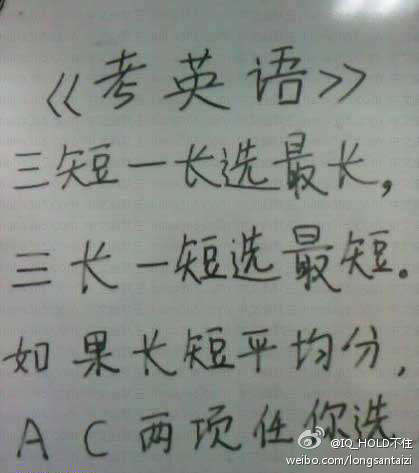 《考英语》
三短一长选最长，
三长一短选最短。
如果长短平均分，
A C 两项任你选
@IQ_HOLD不住
weibo.com/longsantaizi